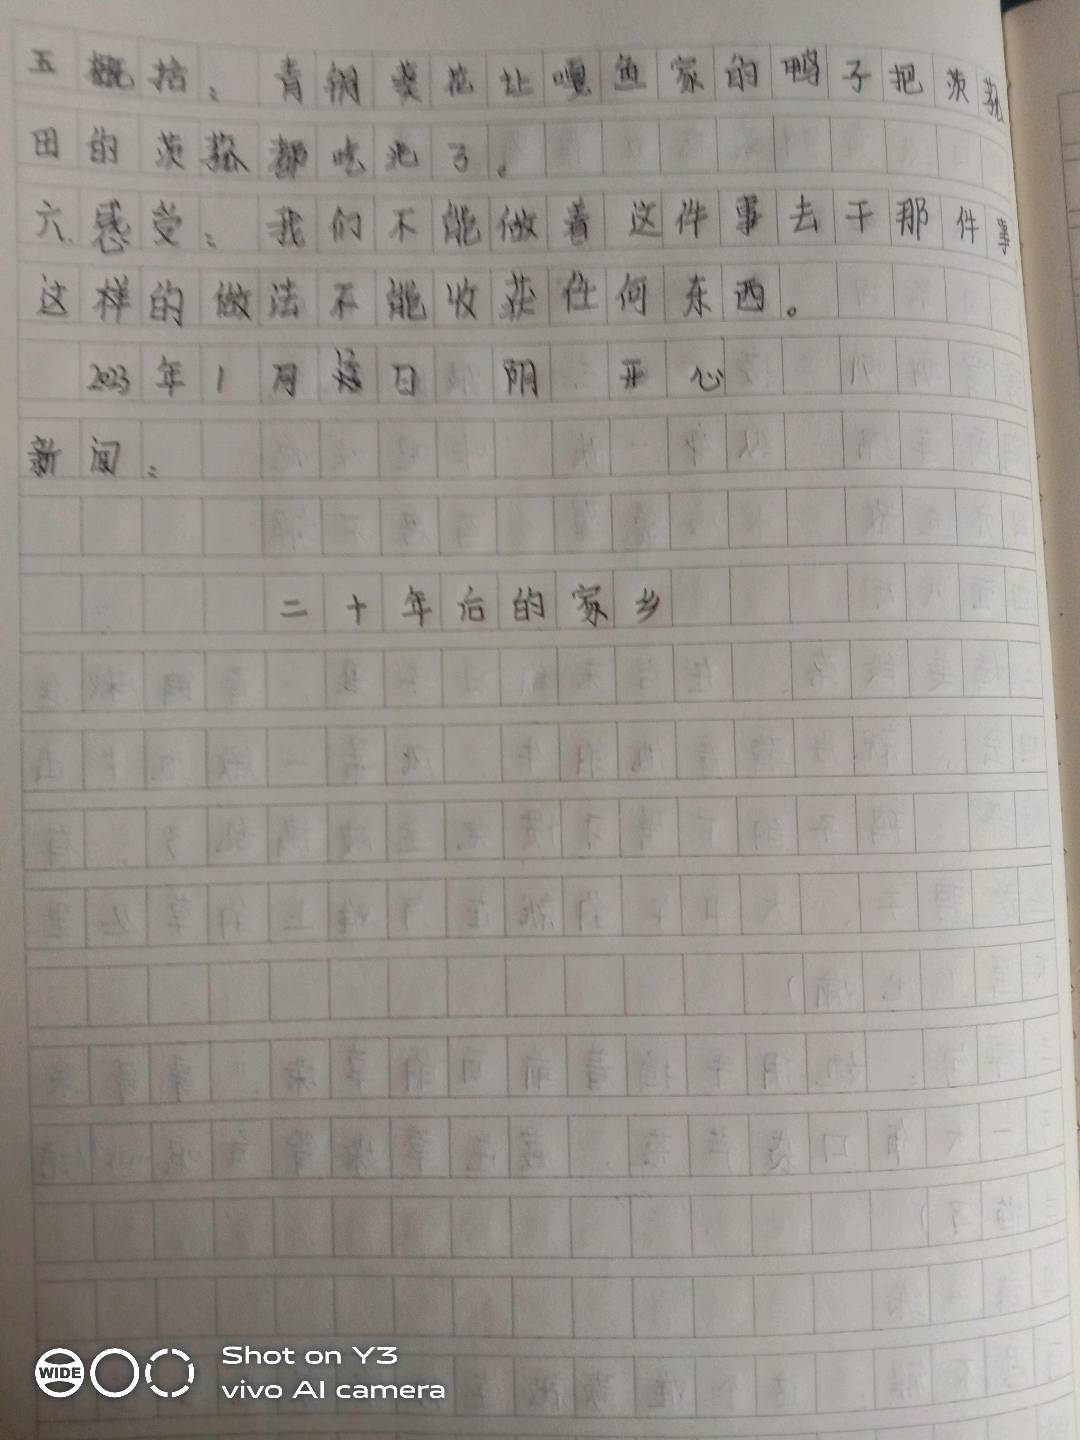 五概括：青铜葵花让嘎鱼家的鸭子把茨菰
田的茨菰都吃光了。
六、感受：我们不能做着这件事去干那件事
这样的做法不能收获任何东西。
2023年1月 日 阴 开心
新闻：
二十年后的家乡
WIDE
Shot on Y3
vivo AI camera